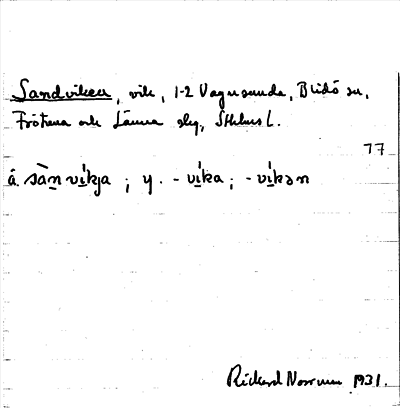 Sandviken, vik, 1-2 Vagnsunda, Blidö sn,
Frötuna och Länna slg, Sthlms l.
77
å sàn víkja ; y. - víka ; - víkən
Rickard Norrman 1931.